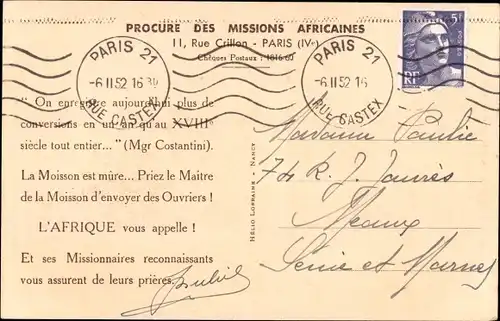 PROCURE DES MISSIONS AFRICAINES
11, Rue Crillon - PARIS (IVe)
Chèques Postaux : 1816.60
PARIS 21
-6 II 52 16 30
RUE CASTEX
PARIS 21
-6 II 52 16
RUE CASTEX
5F
RF
“ On enregistre aujourd'hui plus de
conversions en un an qu'au XVIIIe
siècle tout entier... ” (Mgr Costantini).
La Moisson est mûre... Priez le Maître
de la Moisson d'envoyer des Ouvriers !
L'AFRIQUE vous appelle !
Et ses Missionnaires reconnaissants
vous assurent de leurs prières.
HÉLIO-LORRAINE - NANCY
Madame
74 R. J. Jaurès
Meaux
Seine et Marne